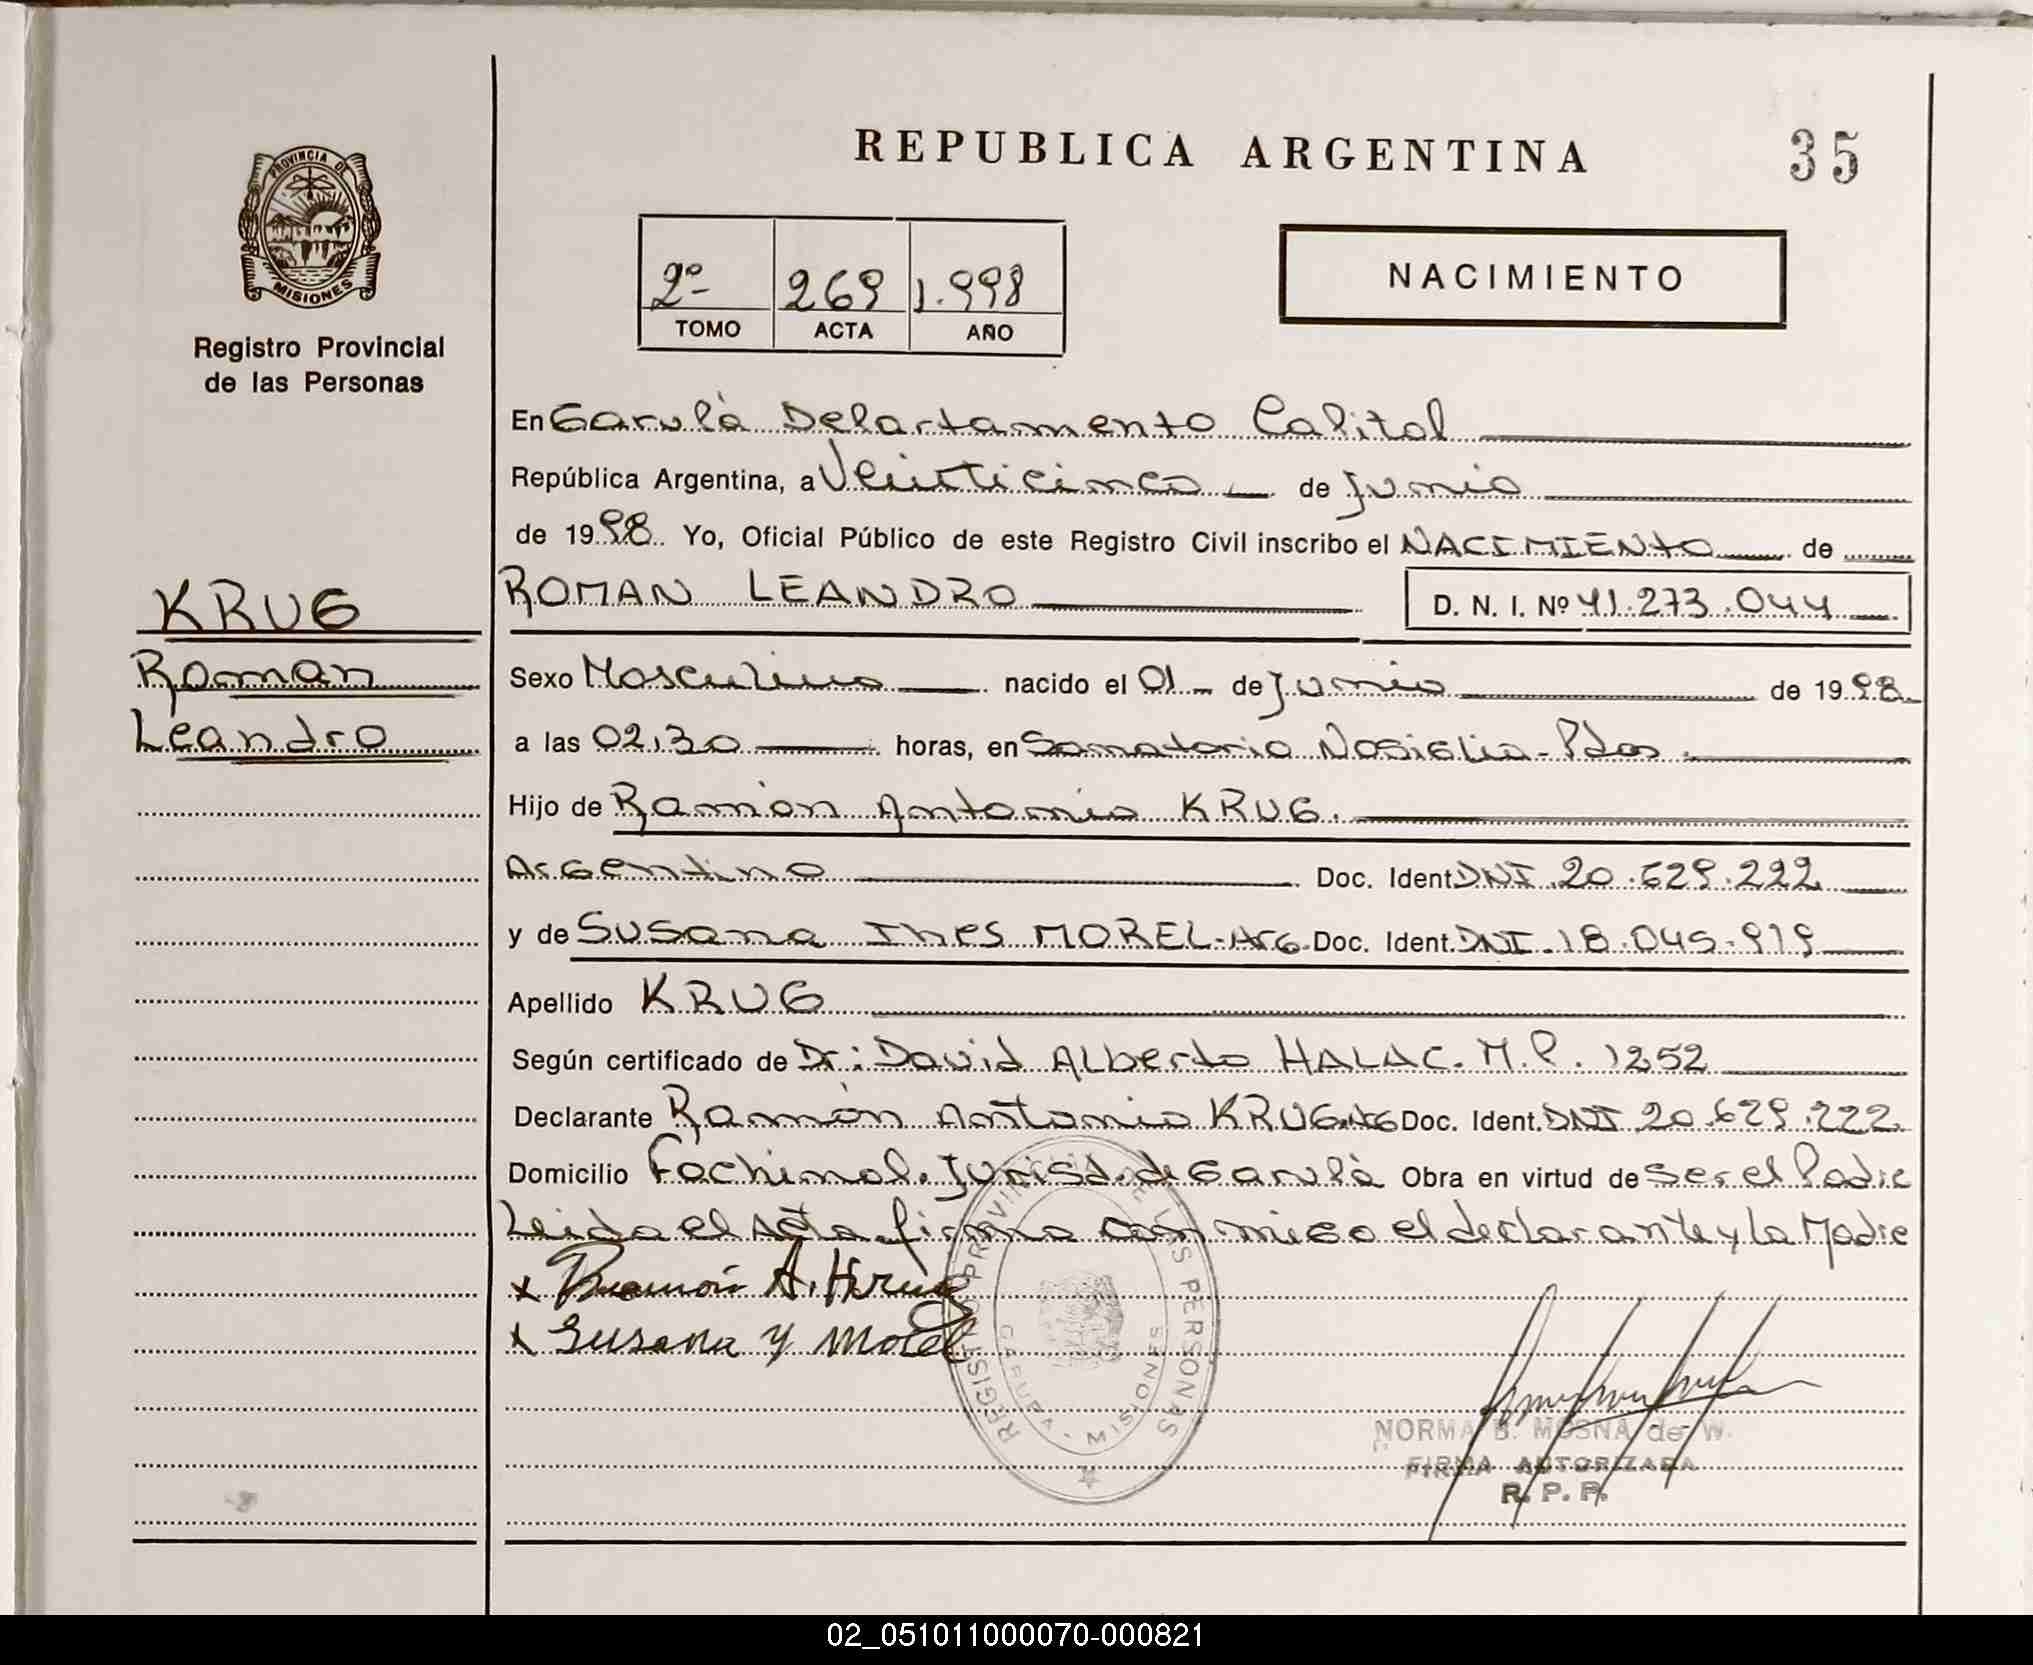 REPUBLICA ARGENTINA
35
PROVINCIA DE
MISIONES
Registro Provincial
de las Personas
2º 269 1.998
TOMO ACTA AÑO
NACIMIENTO
En Garupà Departamento Capital
República Argentina, a Veinticinco de Junio
de 1998 Yo, Oficial Público de este Registro Civil inscribo el NACIMIENTO de
KRUG
Roman
Leandro
ROMAN LEANDRO D. N. I. Nº 41.273.044
Sexo Masculino nacido el 01 de Junio de 1998
a las 02,30 horas, en Sanatorio Nosiglia - Pdas.
Hijo de Ramón Antonio KRUG.
Argentino Doc. Ident. DNI 20.629.222
y de Susana Ines MOREL-Arg. Doc. Ident. DNI. 18.045.919
Apellido KRUG
Según certificado de Dr: David Alberto HALAC. M.P. 1252
Declarante Ramón Antonio KRUG. Arg Doc. Ident. DNI 20.629.222
Domicilio Fachinal. Jurisd. de Garupà Obra en virtud de ser el Padre
Leida el Acta firma conmigo el declarante y la Madre
x Ramón A. Krug
x Susana Y Morel
REGISTRO PROVINCIAL DE LAS PERSONAS
GARUPA - MISIONES
NORMA B. MOSNA de W.
FIRMA AUTORIZADA
R. P. P.
02_051011000070-000821